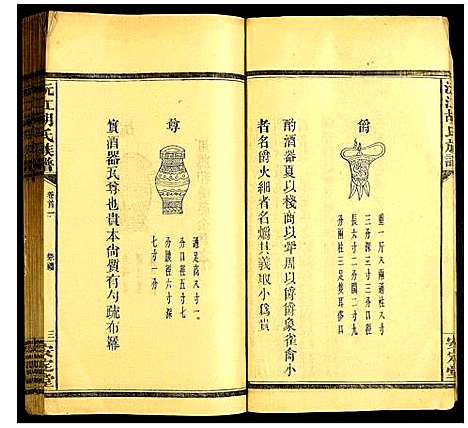 沅江胡氏族譜
安定堂
爵
重一斤八兩通柱八寸
三分深三寸三分口徑
長六寸二分闊二寸九
分兩柱三足有耳侈口
酌酒器夏以棧商以斝周以爵爵象雀畜小
者名爵火細者名爝其義取小為貴
尊
通足高八寸一
分口徑五寸七
分腹徑六寸深
七寸一分
實酒器瓦尊也貴本尚質有勺疏布冪
沅江胡氏族譜
卷首一
祭禮
三
安定堂